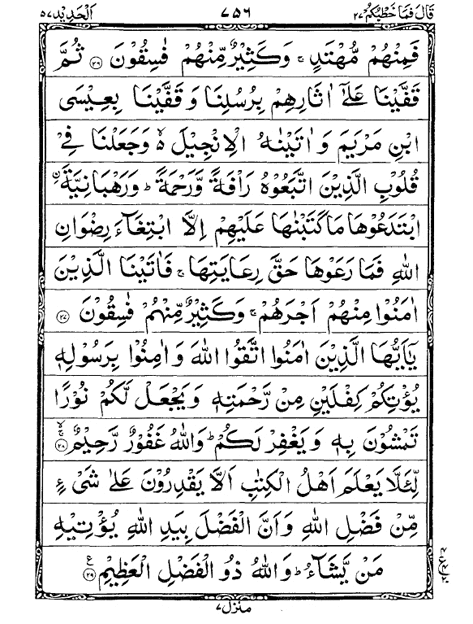 قَالَ فَمَا خَطْبُكُمْ ٢٧ ٧٥٦ اَلْحَدِيْد ٥٧
فَمِنْهُمْ مُّهْتَدٍ ۚ وَكَثِيْرٌ مِّنْهُمْ فٰسِقُوْنَ ﴿٢٦﴾ ثُمَّ
قَفَّيْنَا عَلٰٓى اٰثَارِهِمْ بِرُسُلِنَا وَقَفَّيْنَا بِعِيْسَى
ابْنِ مَرْيَمَ وَاٰتَيْنٰهُ الْاِنْجِيْلَ ۙ وَجَعَلْنَا فِيْ
قُلُوْبِ الَّذِيْنَ اتَّبَعُوْهُ رَاْفَةً وَّرَحْمَةً ؕ وَرَهْبَانِيَّةَ ۨ
ابْتَدَعُوْهَا مَا كَتَبْنٰهَا عَلَيْهِمْ اِلَّا ابْتِغَآءَ رِضْوَانِ
اللّٰهِ فَمَا رَعَوْهَا حَقَّ رِعَايَتِهَا ۚ فَاٰتَيْنَا الَّذِيْنَ
اٰمَنُوْا مِنْهُمْ اَجْرَهُمْ ۚ وَكَثِيْرٌ مِّنْهُمْ فٰسِقُوْنَ ﴿٢٧﴾
يٰۤاَيُّهَا الَّذِيْنَ اٰمَنُوا اتَّقُوا اللّٰهَ وَاٰمِنُوْا بِرَسُوْلِهٖ
يُؤْتِكُمْ كِفْلَيْنِ مِنْ رَّحْمَتِهٖ وَيَجْعَلْ لَّكُمْ نُوْرًا
تَمْشُوْنَ بِهٖ وَيَغْفِرْ لَكُمْ ؕ وَاللّٰهُ غَفُوْرٌ رَّحِيْمٌ ﴿٢٨﴾
لِّئَلَّا يَعْلَمَ اَهْلُ الْكِتٰبِ اَلَّا يَقْدِرُوْنَ عَلٰى شَيْءٍ
مِّنْ فَضْلِ اللّٰهِ وَاَنَّ الْفَضْلَ بِيَدِ اللّٰهِ يُؤْتِيْهِ
مَنْ يَّشَآءُ ؕ وَاللّٰهُ ذُو الْفَضْلِ الْعَظِيْمِ ﴿٢٩﴾
منزل ٧